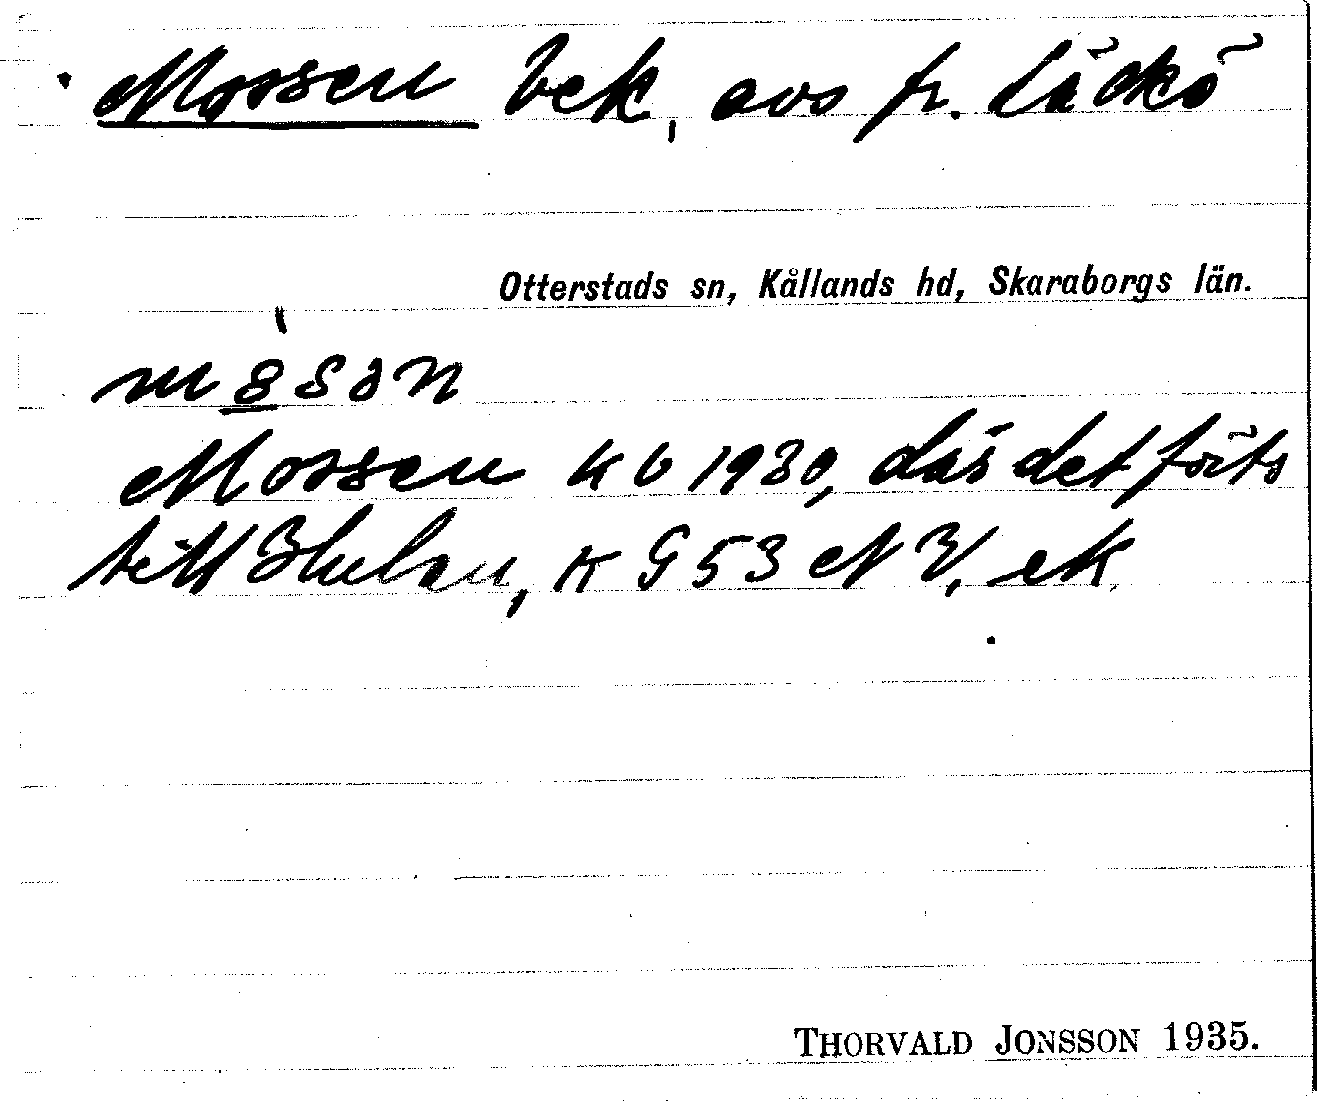 Mossen bek, avs fr. Läckö
Otterstads sn, Kållands hd, Skaraborgs län.
Mossen kb 1930, där det förts
till, K G53 NV, ek.
THORVALD JONSSON 1935.